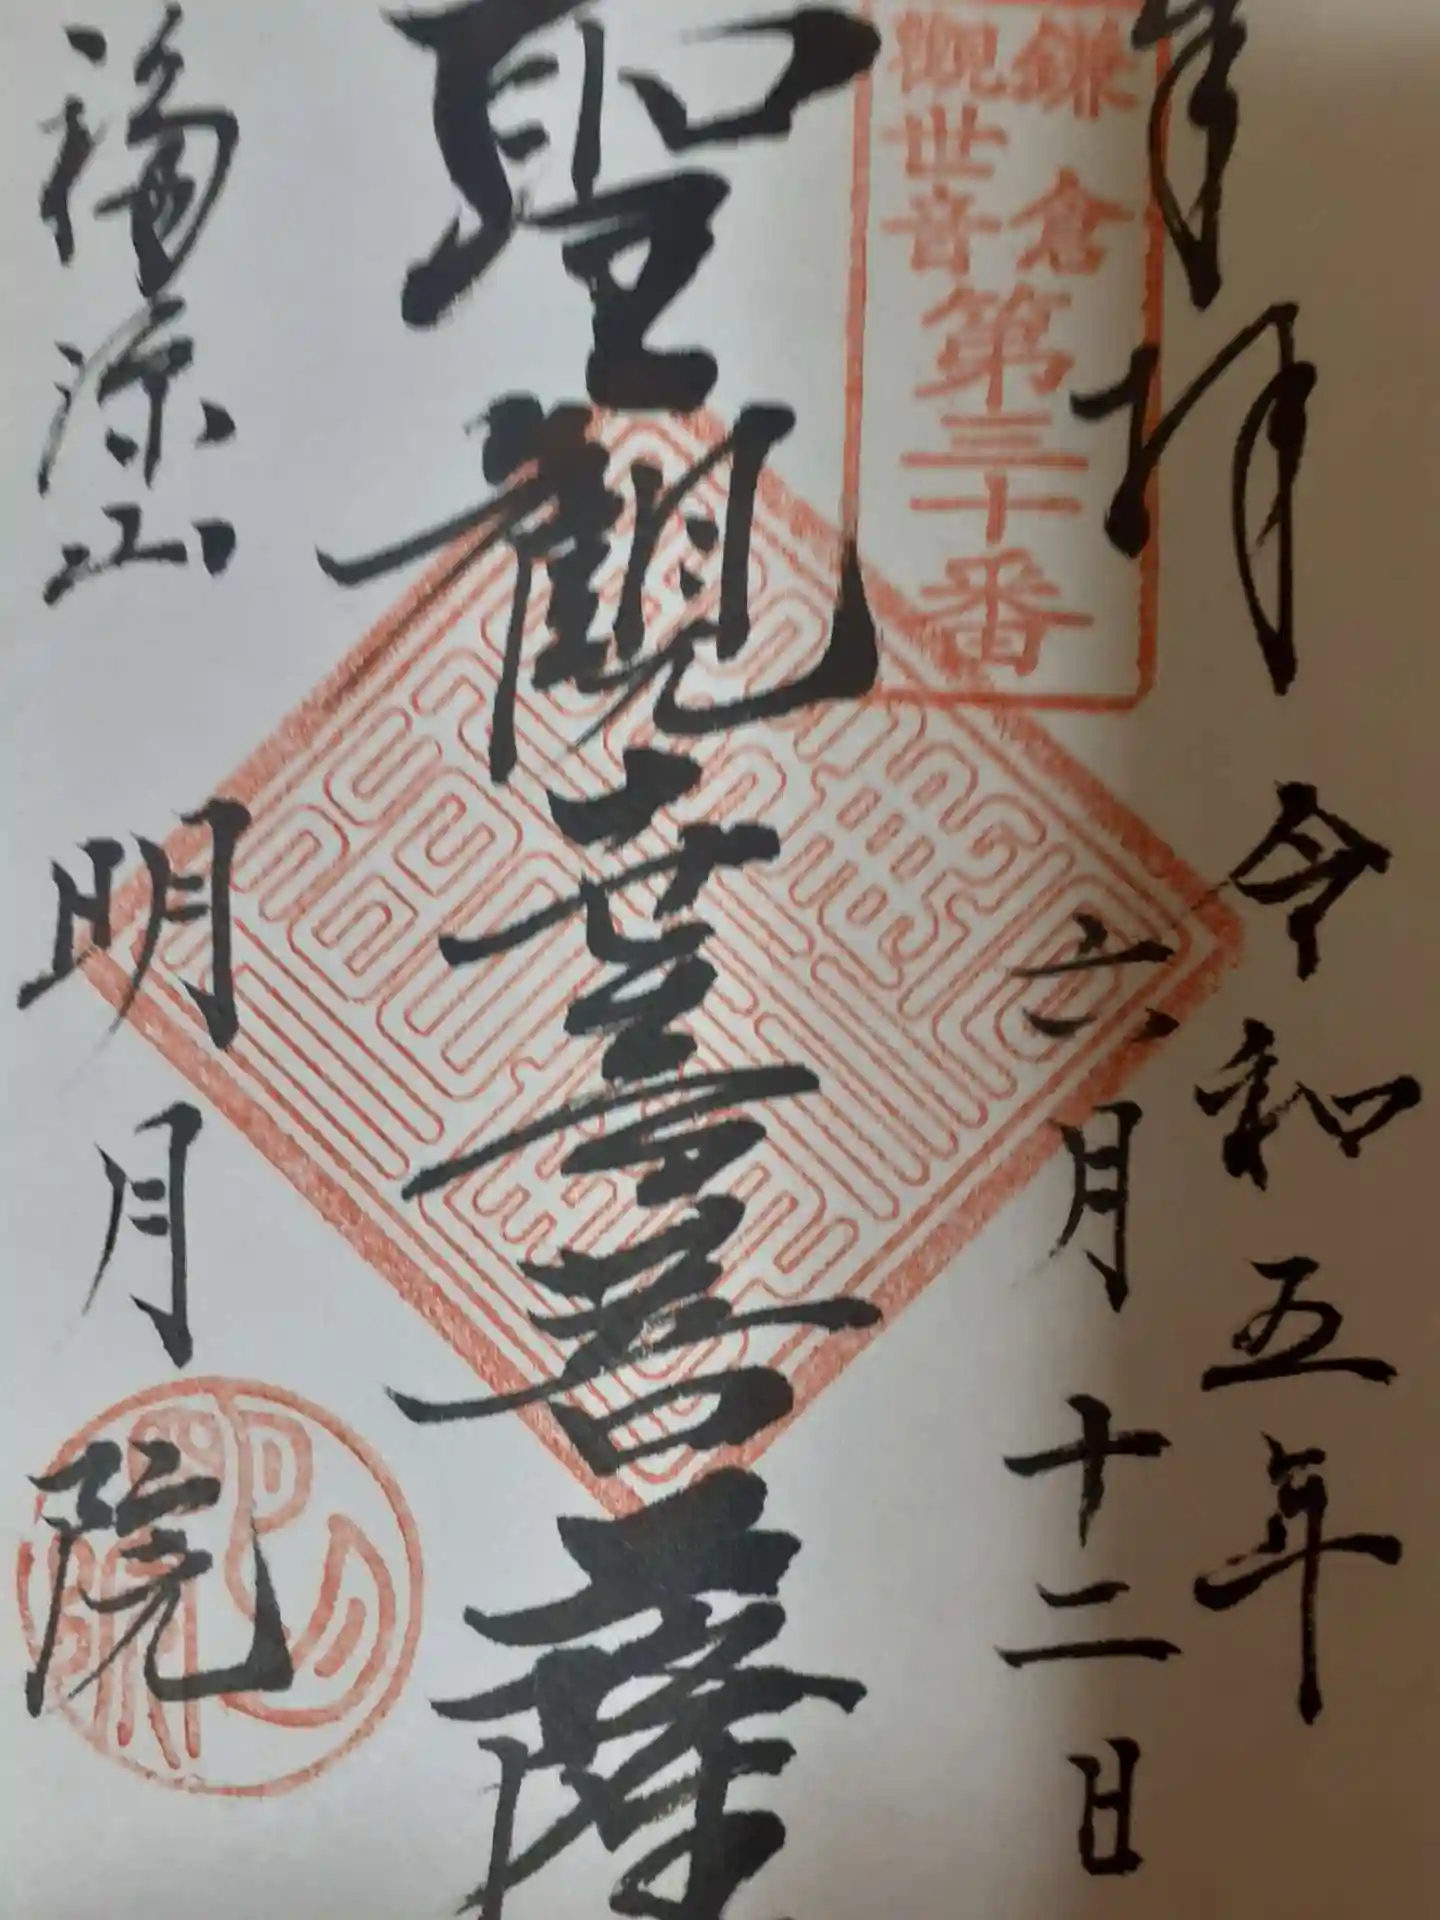 奉拝
令和五年
六月十二日
鎌倉
觀世音
第三十番
聖觀世音菩薩
福源山
明月院